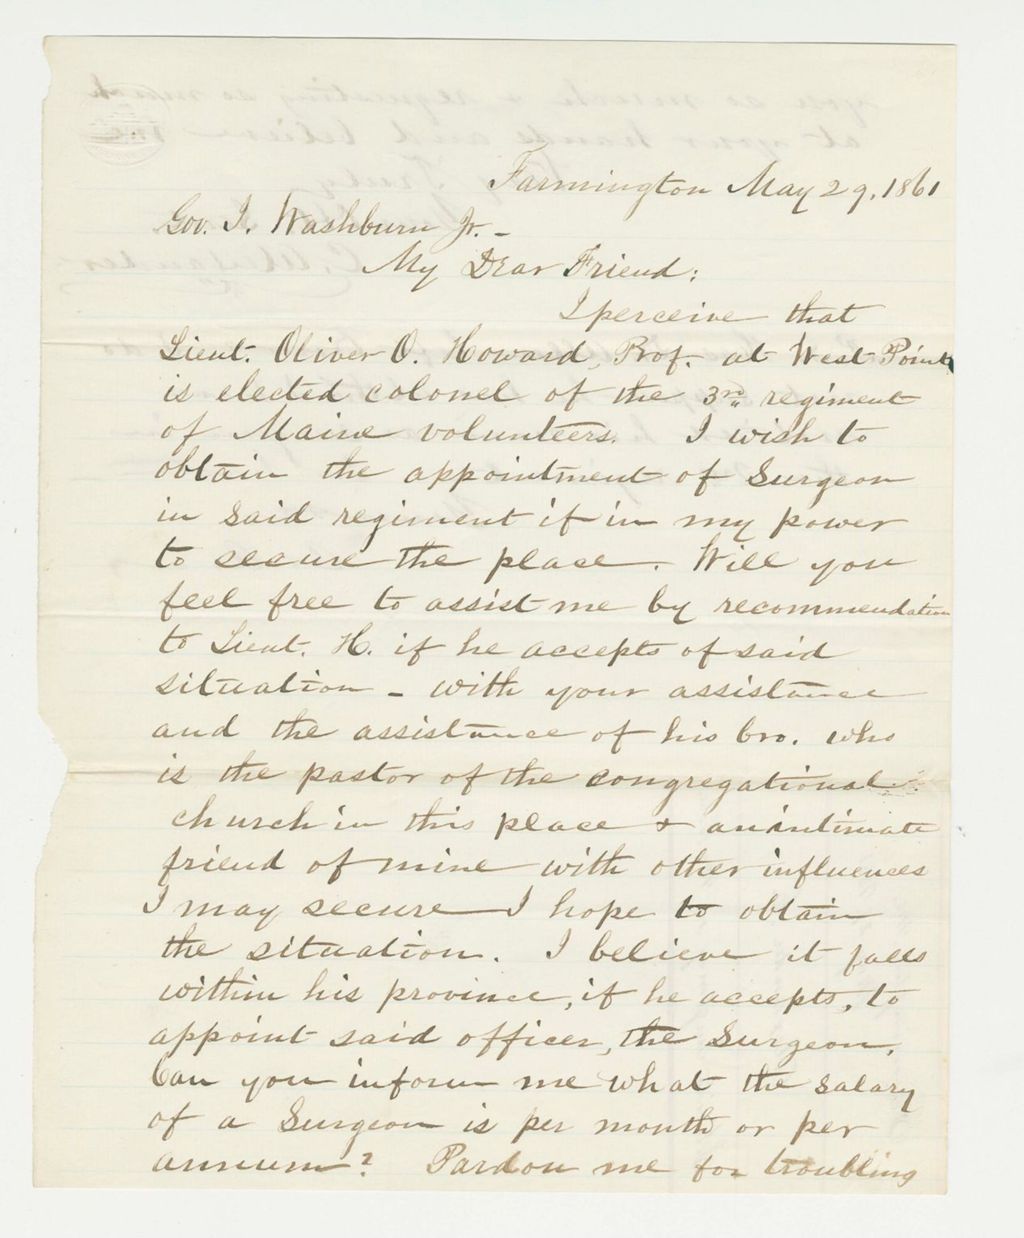 Farmington May 29, 1861
Gov. I. Washburn Jr. -
My Dear Friend:
I perceive that
Lieut. Oliver O. Howard, Prof. at West Point
is elected colonel of the 3rd regiment
of Maine volunteers. I wish to
obtain the appointment of Surgeon
in said regiment if in my power
to secure the place. Will you
feel free to assist me by recommendation
to Lieut. H. if he accepts of said
situation - with your assistance
and the assistance of his bro. who
is the pastor of the congregational
church in this place & an intimate
friend of mine with other influences
I may secure I hope to obtain
the situation. I believe it falls
within his province, if he accepts, to
appoint said officer, the Surgeon.
Can you inform me what the salary
of a Surgeon is per month or per
annum? Pardon me for troubling